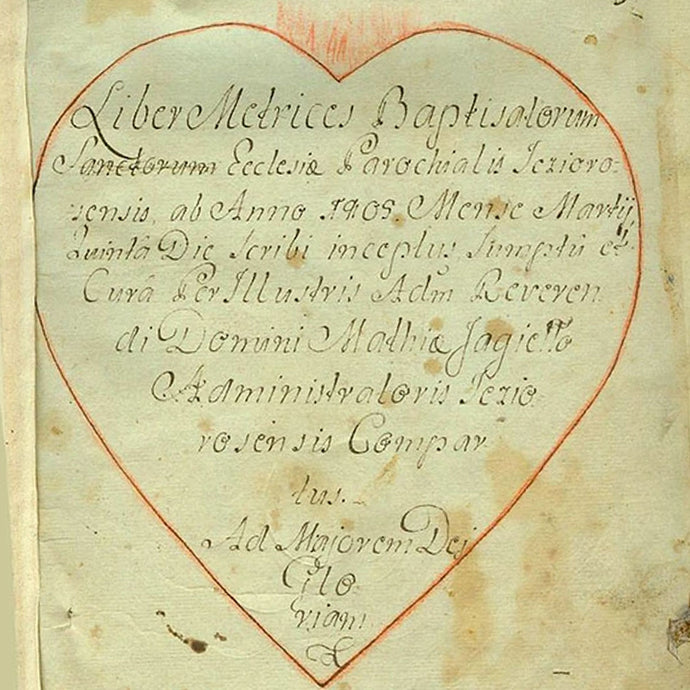 Liber Metrices Baptisatorum
Sanctorum Ecclesiæ Parochialis Jezioro-
sensis, ab Anno Mense Martij
Quintâ Die Scribi inceptus, Sumptû et
Curâ Per Illustris Adm̄ Reveren
di Domini Mathiæ Jagiełło
Administratoris Jezio
rosensis Compar
tus.
Ad Majorem Dej
Glo
riam